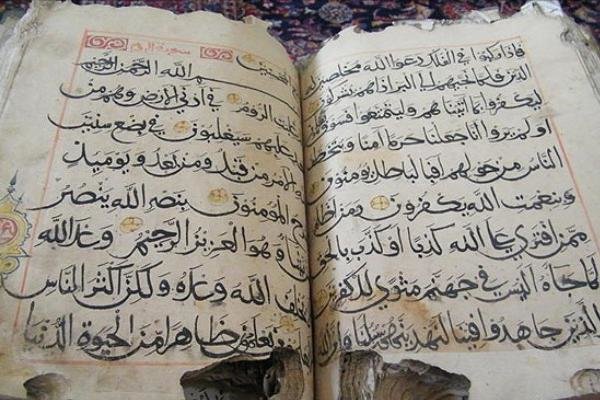 فاذا ركبوا في الفلك دعوا الله مخلصين
الدين فلما نجيهم الى البر اذا هم يشركون
ليكفروا بما اتيناهم وليتمتعوا فسوف
اولم يروا انا جعلنا حرما امنا ويتخطف
الناس من حولهم افبالباطل يؤمنون
وبنعمت الله يكفرون ومن اظلم
ممن افترى على الله كذبا او كذب بالحق
لما جاه اليس في جهنم مثوى للكفرين
الذين جاهدوا فينا لنهدينهم سبلنا وان الله
المحسنين سورة الروم
بسم الله الرحمن الرحيم
غلبت الروم في ادنى الارض وهم من
غلبهم سيغلبون في بضع سنين
الامر من قبل ومن بعد ويوميذ
المؤمنون بنصر الله ينصر
يشا وهو العزيز الرحيم وعد الله
يخلف الله وعده ولكن اكثر الناس
يعلمون ظاهرا من الحيوة الدنيا